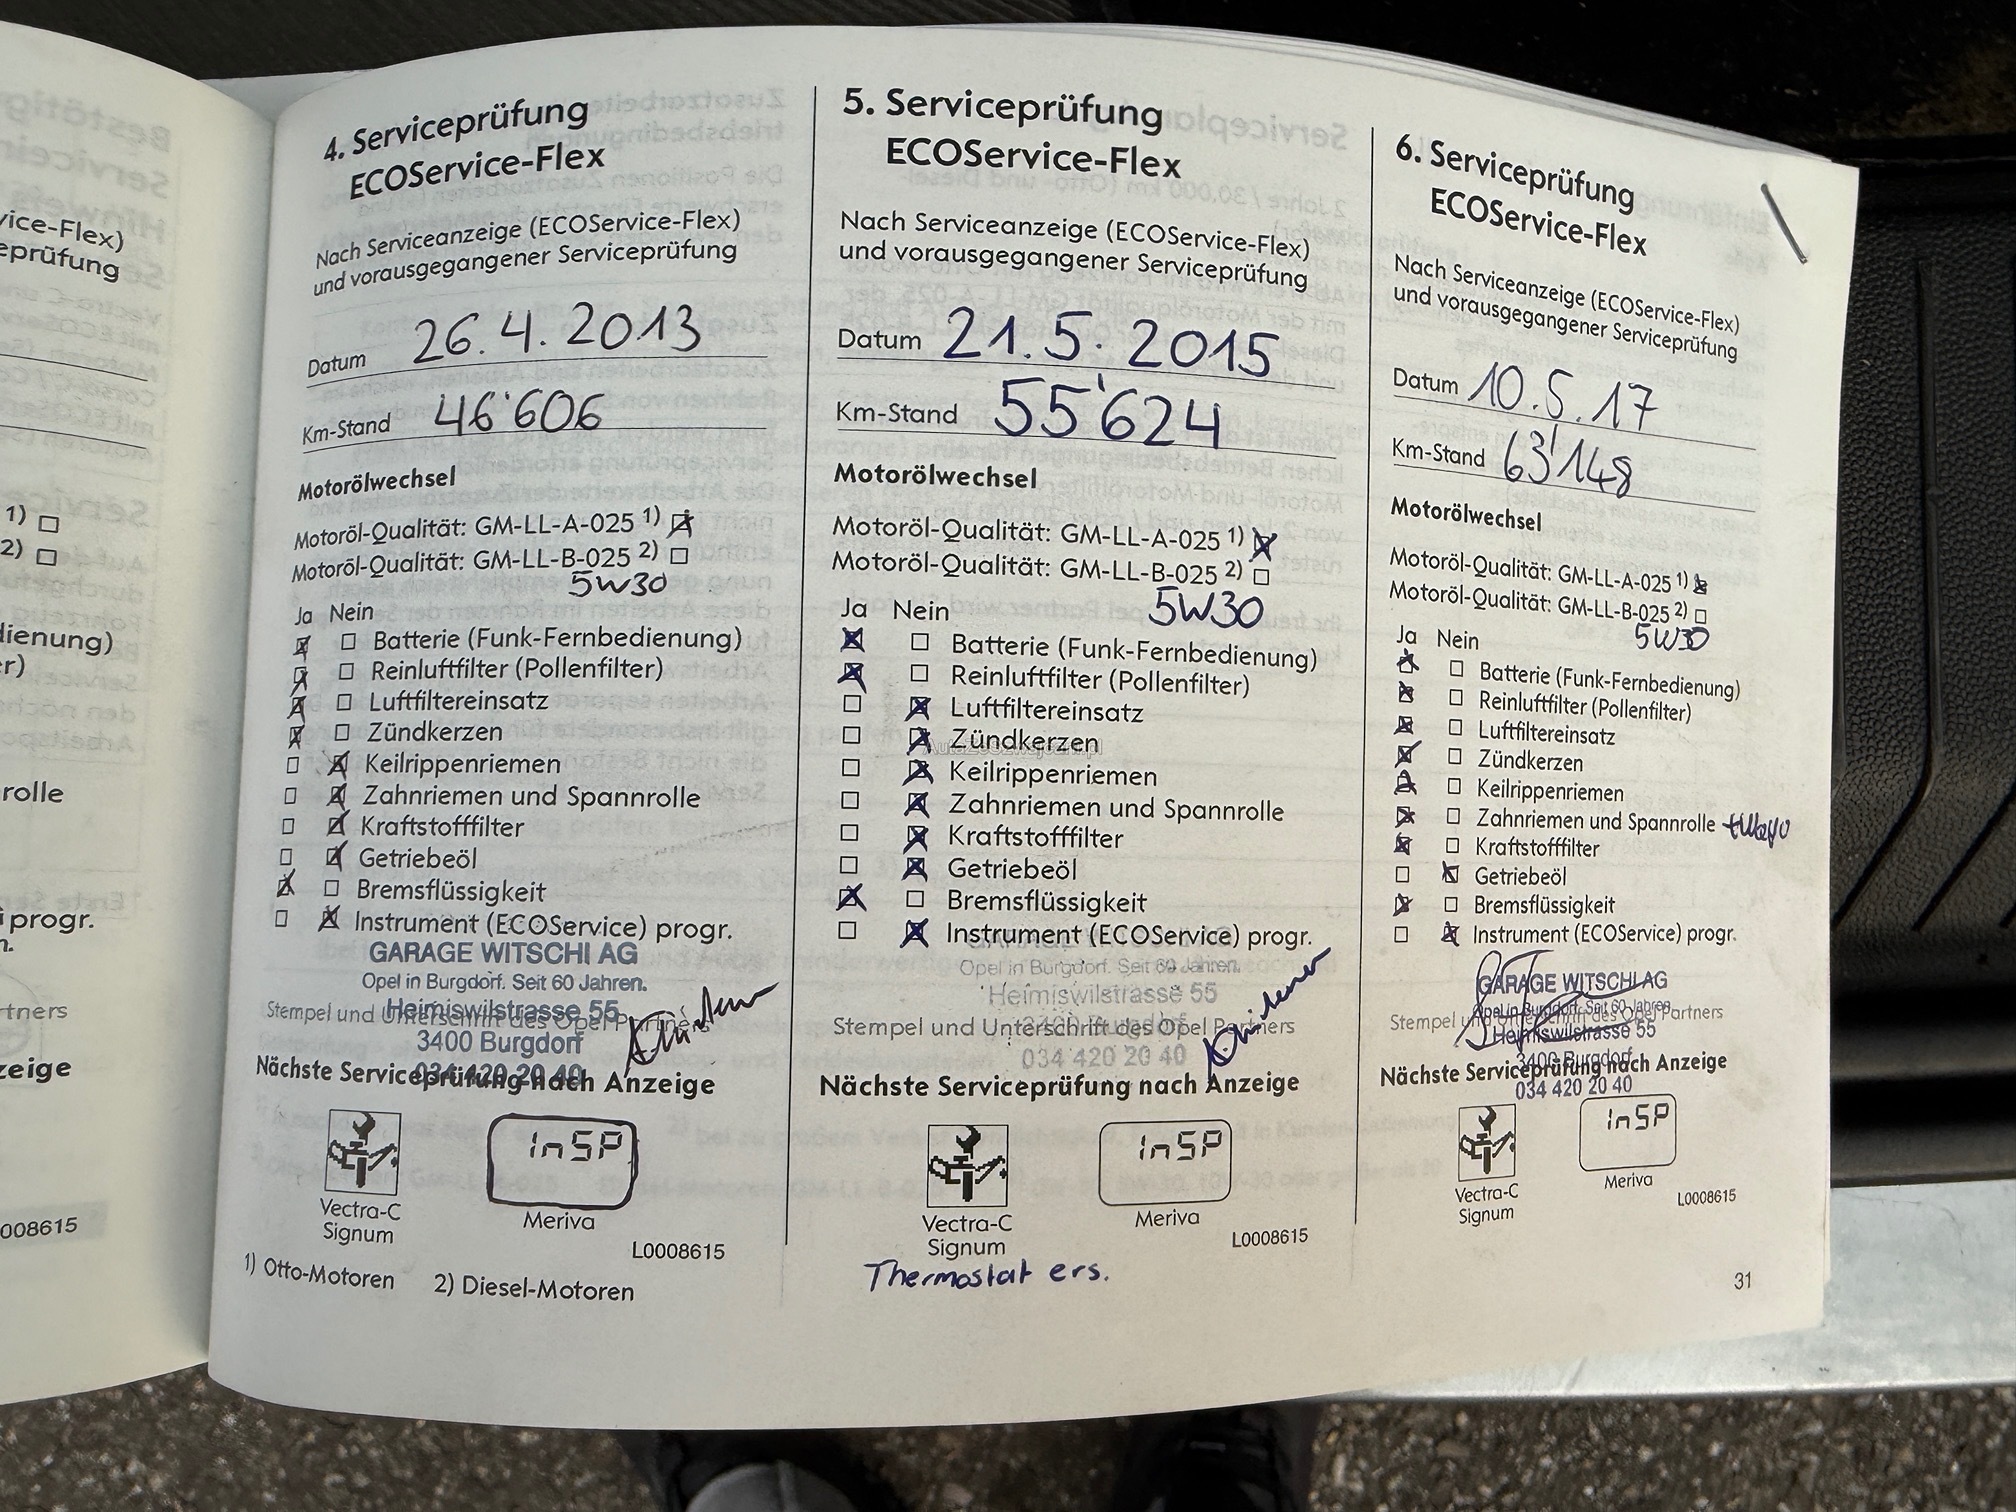 vice-Flex)
eprüfung
1) □
2) □
dienung)
r)
rolle
progr.
rtners
zeige
008615
4. Serviceprüfung
ECOService-Flex
Nach Serviceanzeige (ECOService-Flex)
und vorausgegangener Serviceprüfung
Datum 26.4.2013
Km-Stand 46'606
Motorölwechsel
Motoröl-Qualität: GM-LL-A-025 1) ☒
Motoröl-Qualität: GM-LL-B-025 2) □
5W30
Ja Nein
☒ □ Batterie (Funk-Fernbedienung)
☒ □ Reinluftfilter (Pollenfilter)
☒ □ Luftfiltereinsatz
☒ □ Zündkerzen
□ ☒ Keilrippenriemen
□ ☒ Zahnriemen und Spannrolle
□ ☒ Kraftstofffilter
□ ☒ Getriebeöl
☒ □ Bremsflüssigkeit
□ ☒ Instrument (ECOService) progr.
GARAGE WITSCHI AG
Opel in Burgdorf. Seit 60 Jahren.
Heimiswilstrasse 55
Stempel und Unterschrift des Opel Partners
3400 Burgdorf
034 420 20 40
Nächste Serviceprüfung nach Anzeige
InSP
Vectra-C
Signum
Meriva
L0008615
1) Otto-Motoren 2) Diesel-Motoren
5. Serviceprüfung
ECOService-Flex
Nach Serviceanzeige (ECOService-Flex)
und vorausgegangener Serviceprüfung
Datum 21.5.2015
Km-Stand 55'624
Motorölwechsel
Motoröl-Qualität: GM-LL-A-025 1) ☒
Motoröl-Qualität: GM-LL-B-025 2) □
5W30
Ja Nein
☒ □ Batterie (Funk-Fernbedienung)
☒ □ Reinluftfilter (Pollenfilter)
□ ☒ Luftfiltereinsatz
□ ☒ Zündkerzen
□ ☒ Keilrippenriemen
□ ☒ Zahnriemen und Spannrolle
□ ☒ Kraftstofffilter
□ ☒ Getriebeöl
☒ □ Bremsflüssigkeit
□ ☒ Instrument (ECOService) progr.
Opel in Burgdorf. Seit 60 Jahren.
Heimiswilstrasse 55
Stempel und Unterschrift des Opel Partners
3400 Burgdorf
034 420 20 40
Nächste Serviceprüfung nach Anzeige
InSP
Vectra-C
Signum
Meriva
L0008615
Thermostat ers.
6. Serviceprüfung
ECOService-Flex
Nach Serviceanzeige (ECOService-Flex)
und vorausgegangener Serviceprüfung
Datum 10.5.17
Km-Stand 63'148
Motorölwechsel
Motoröl-Qualität: GM-LL-A-025 1) ☒
Motoröl-Qualität: GM-LL-B-025 2) □
5W30
Ja Nein
☒ □ Batterie (Funk-Fernbedienung)
☒ □ Reinluftfilter (Pollenfilter)
☒ □ Luftfiltereinsatz
☒ □ Zündkerzen
☒ □ Keilrippenriemen
☒ □ Zahnriemen und Spannrolle
☒ □ Kraftstofffilter
□ ☒ Getriebeöl
☒ □ Bremsflüssigkeit
□ ☒ Instrument (ECOService) progr.
GARAGE WITSCHI AG
Opel in Burgdorf. Seit 60 Jahren.
Stempel und Unterschrift des Opel Partners
Heimiswilstrasse 55
3400 Burgdorf
Nächste Serviceprüfung nach Anzeige
034 420 20 40
InSP
Vectra-C
Signum
Meriva
L0008615
31